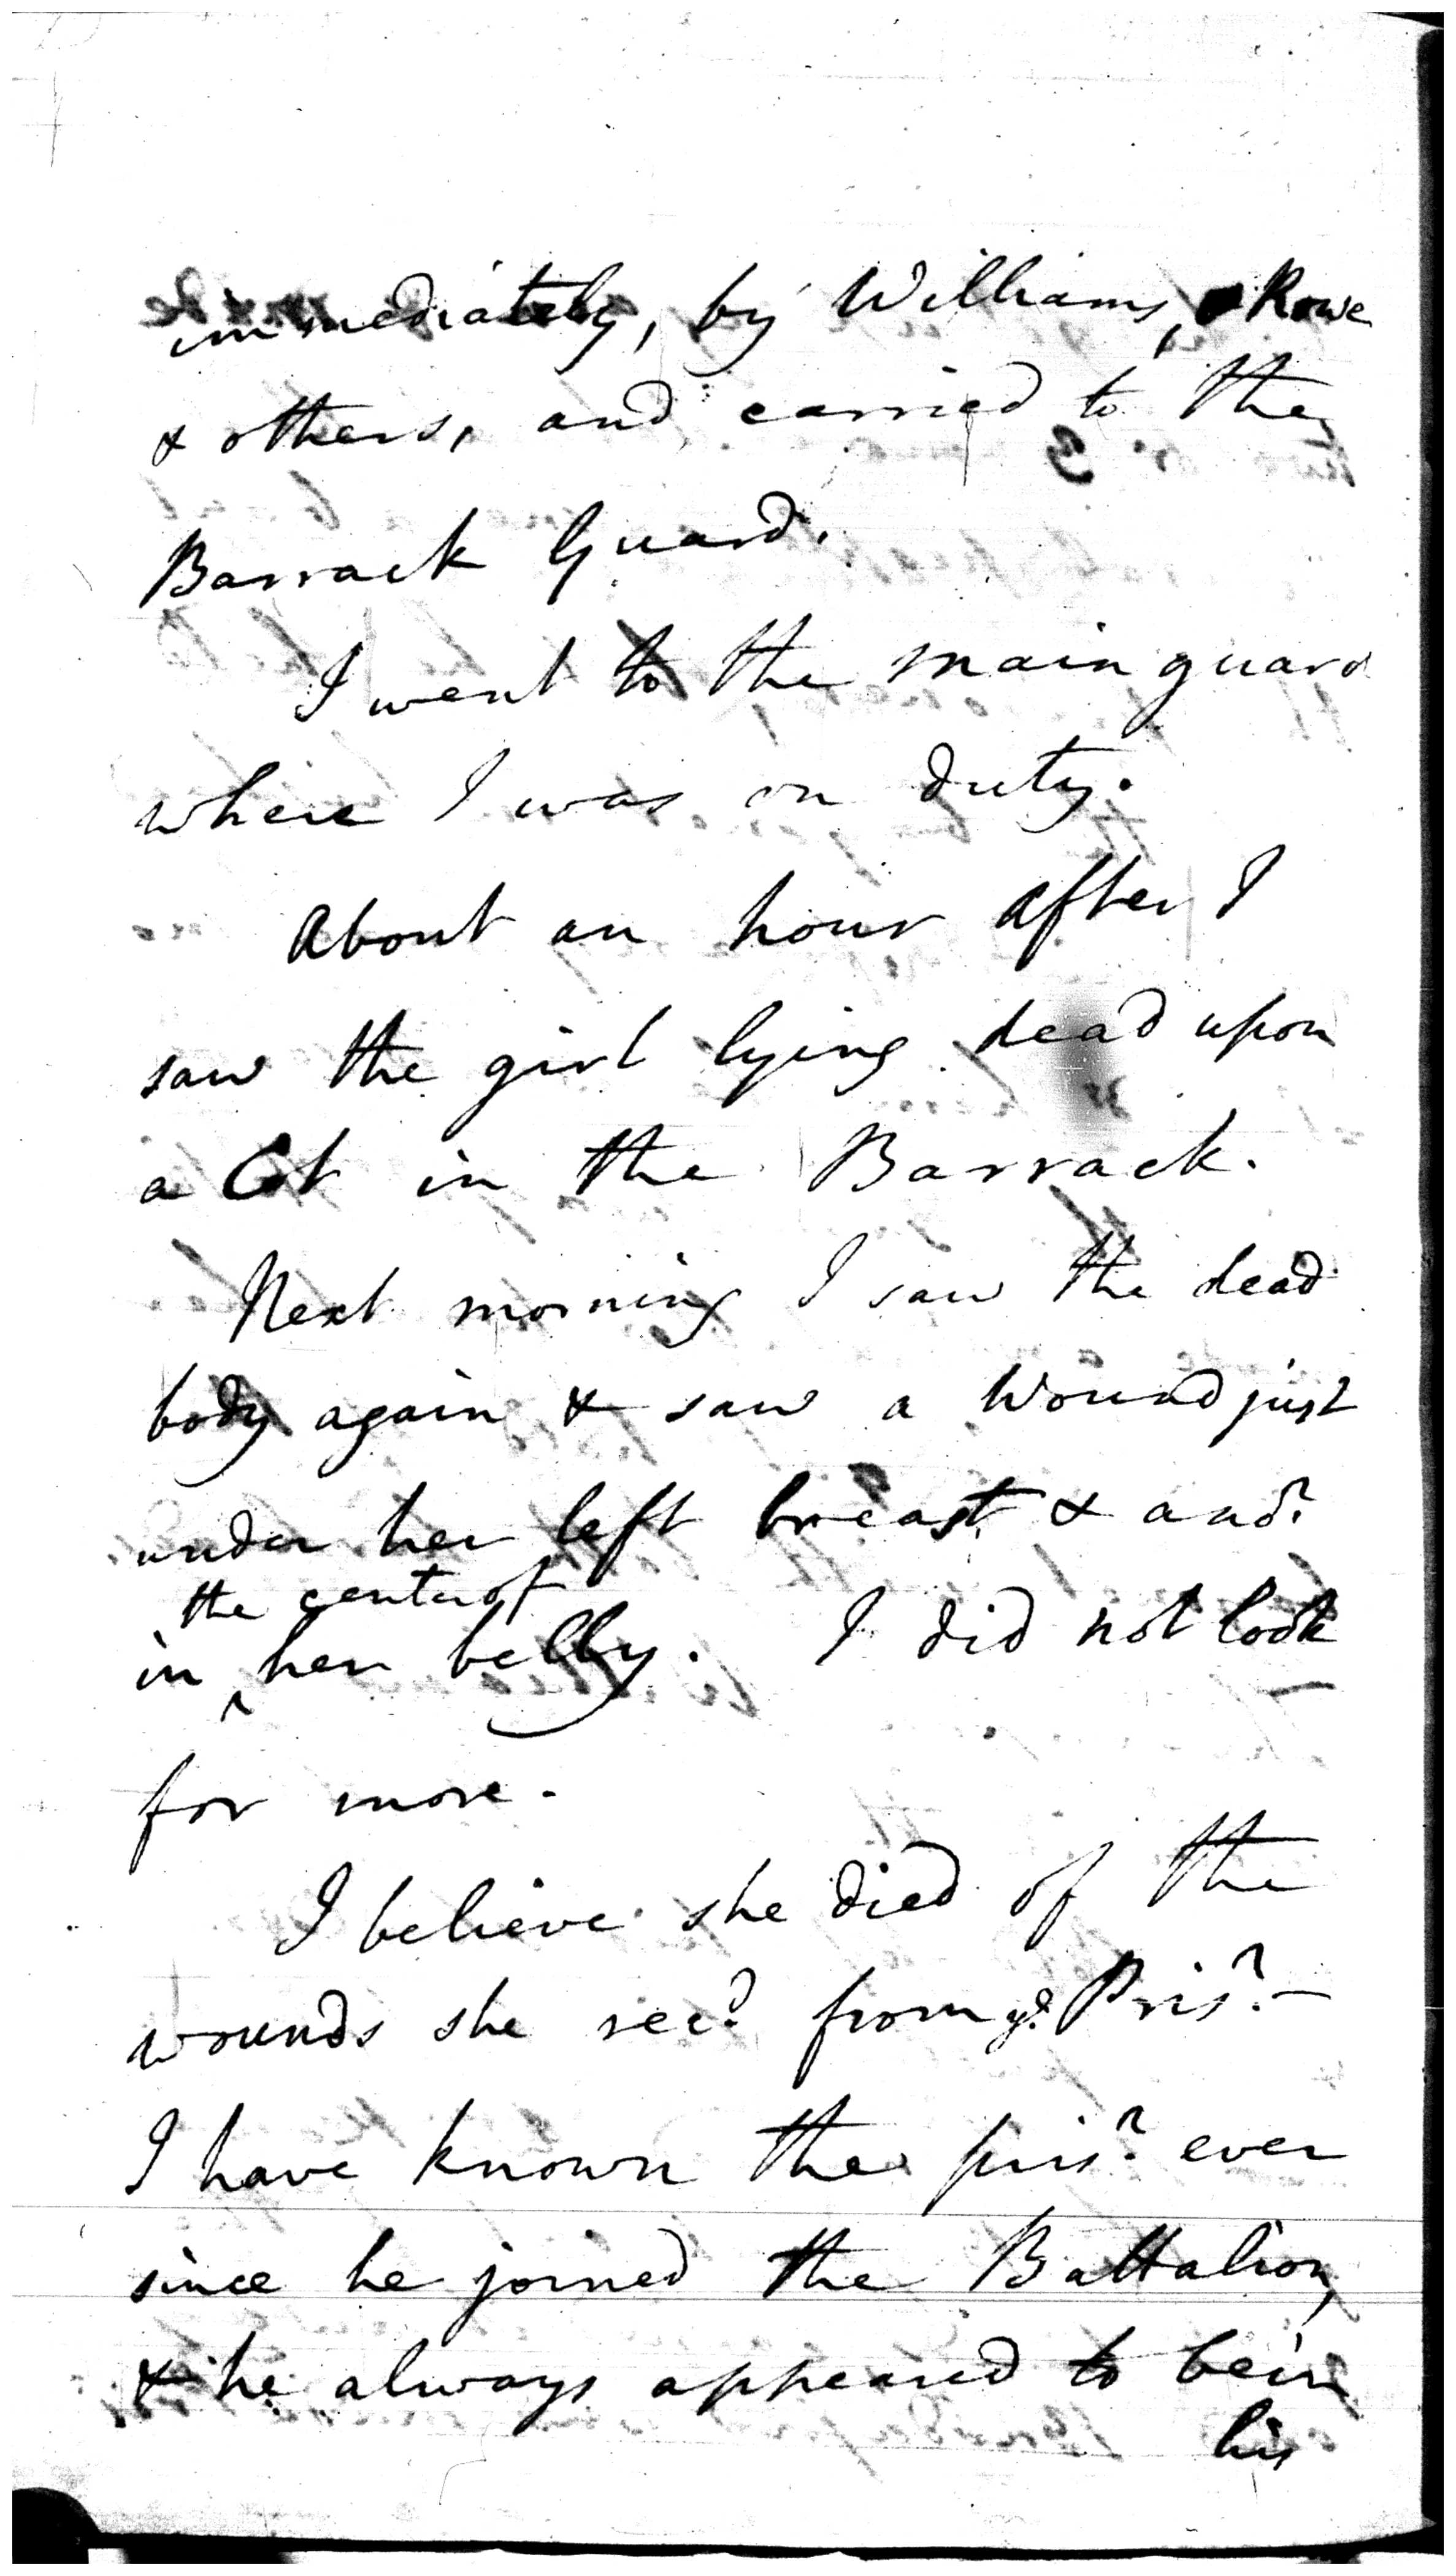 immediately, by Williams, Rowe
& others, and carried to the
Barrack Guard.
I went to the main guard
where I was on duty.
About an hour after I
saw the girl lying dead upon
a Cot in the Barrack.
Next morning I saw the dead
body again & saw a Wound just
under her left breast & anoʳ
the center of
in ^ her belly. I did not look
for more.
I believe she died of the
wounds she recᵈ from yᵉ Prisʳ —
I have known the prisʳ ever
since he joined the Battalion,
& he always appeared to be in
his